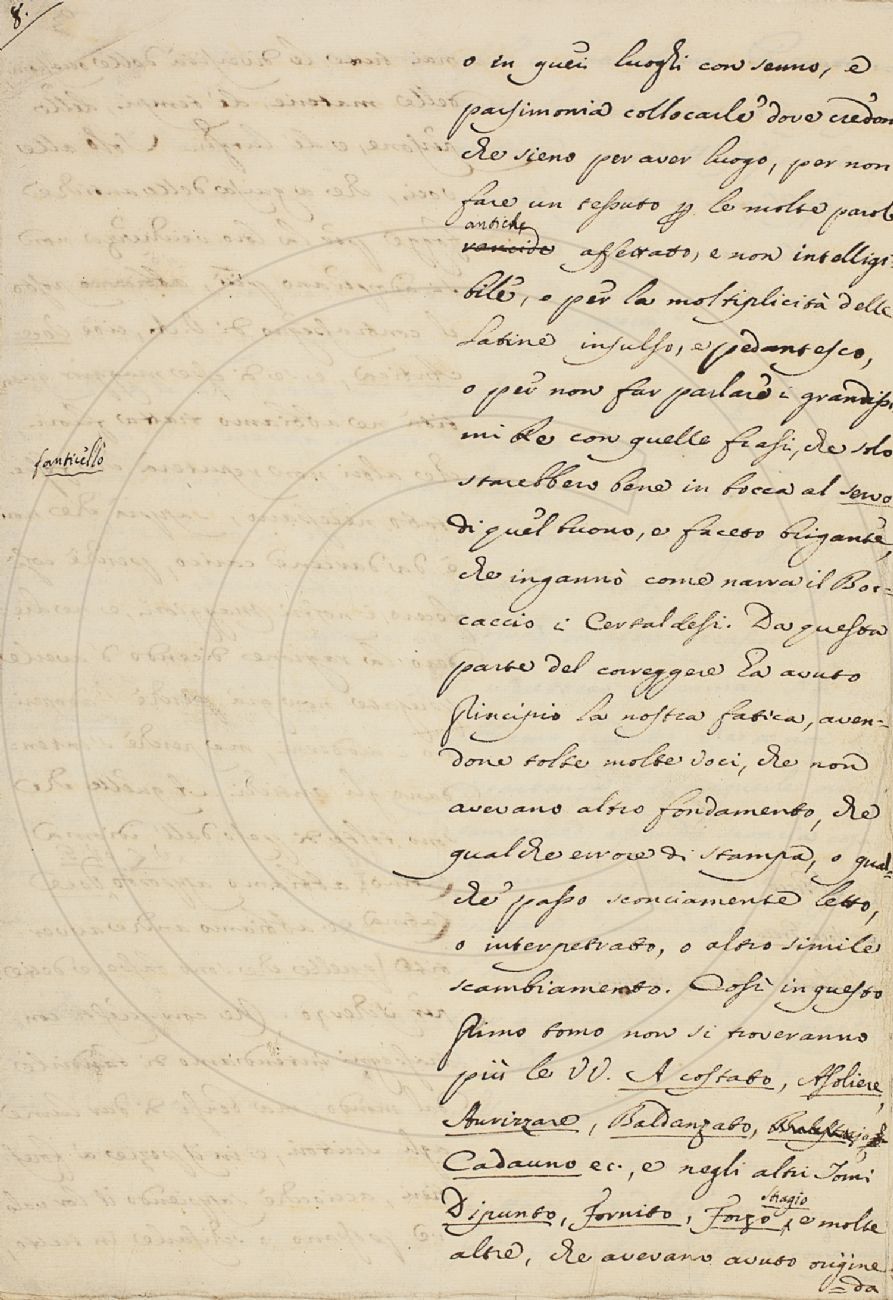 8.
o in quei luoghi con senno, e
parsimonia collocarle dove credon
che sieno per aver luogo, per non
fare un tessuto p le molte parole
antiche
rancide affettato, e non intelligi-
bile, o per la moltiplicità delle
Latine insulso, e pedantesco,
o per non far parlare i grandissi
mi Re con quelle frasi, che solo
fanticello
starebbero bene in bocca al servo
di quel buono, e faceto brigante,
che ingannò come narra il Boc-
caccio i Certaldesi. Da questa
parte del correggere ha avuto
principio la nostra fatica, aven-
done tolte molte voci, che non
avevano altro fondamento, che
qualche errore di stampa, o qual-
che passo sconciamente letto,
o interpetrato, o altro simile
scambiamento. Così in questo
primo tomo non si troveranno
più le VV. Acostato, Assoliere,
Aurizzare, Baldanzato,
Cadauno ec., e negli altri Tomi
stragio
Dipunto, Fornito, Forzo, e molte
altre, che avevano avuto origine
=da